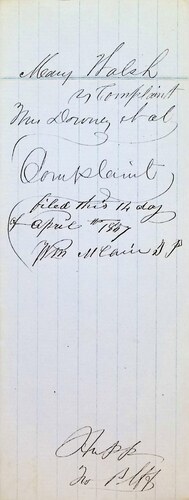 Mary Walsh
vs Complaint
Wm Downey et al
Complaint
filed this 14 day
of April 1857
Wm McCain J P
Hupp
for Plff